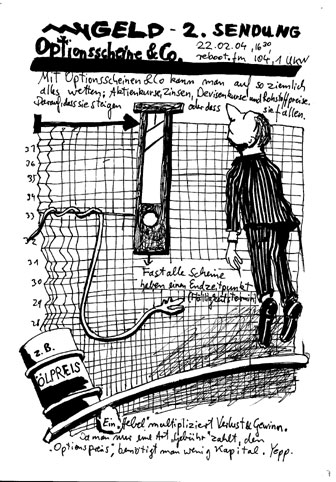 GELD - 2. SENDUNG
Optionsscheine & Co.
22.02.04, 16³⁰
reboot.fm 104,1 UKW
Mit Optionsscheinen & Co kann man auf so ziemlich
alles wetten; Aktienkurse, Zinsen, Devisenkurse und Rohstoffpreise.
Darauf, dass sie steigen oder dass sie fallen.
37
36
35
34
33
32
31
30
29
28
Fast alle Scheine
haben einen Endzeitpunkt
(Fälligkeitstermin)
z.B.
ÖLPREIS
Ein "Hebel" multipliziert Verlust & Gewinn.
Da man nur eine Art Gebühr zahlt, den
"Optionspreis" benötigt man wenig Kapital. Yepp.